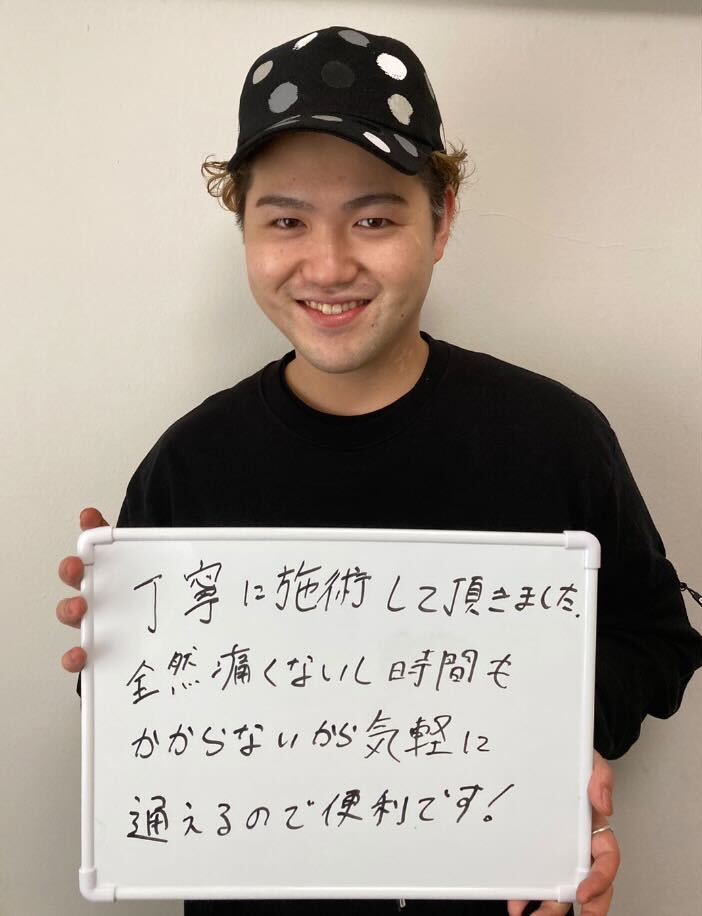 丁寧に施術して頂きました.
全然痛くないし時間も
かからないから気軽に
通えるので便利です!